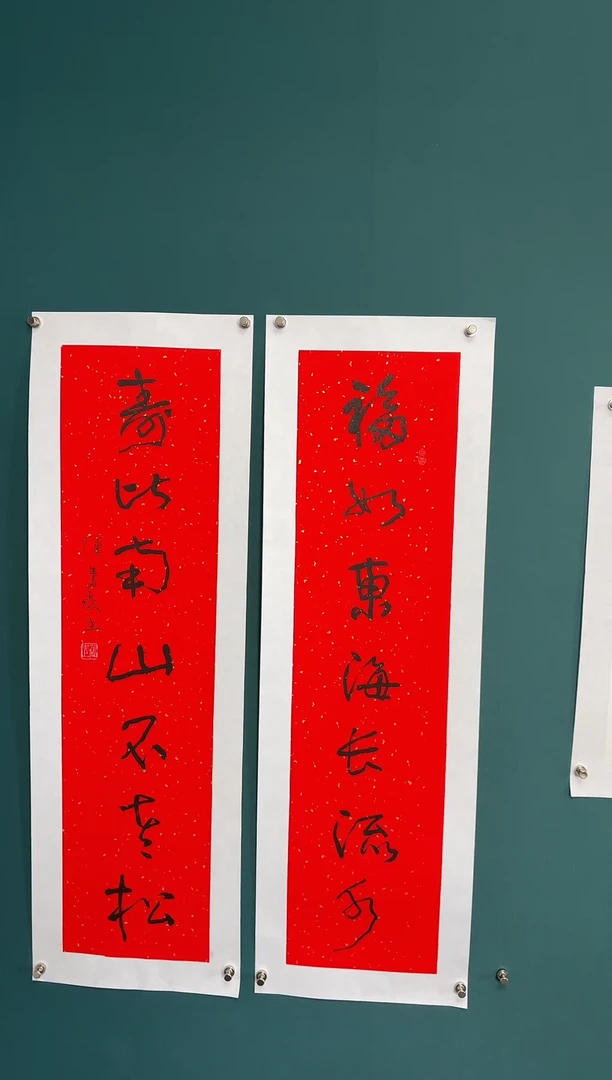 福如東海长流水
壽比南山不老松